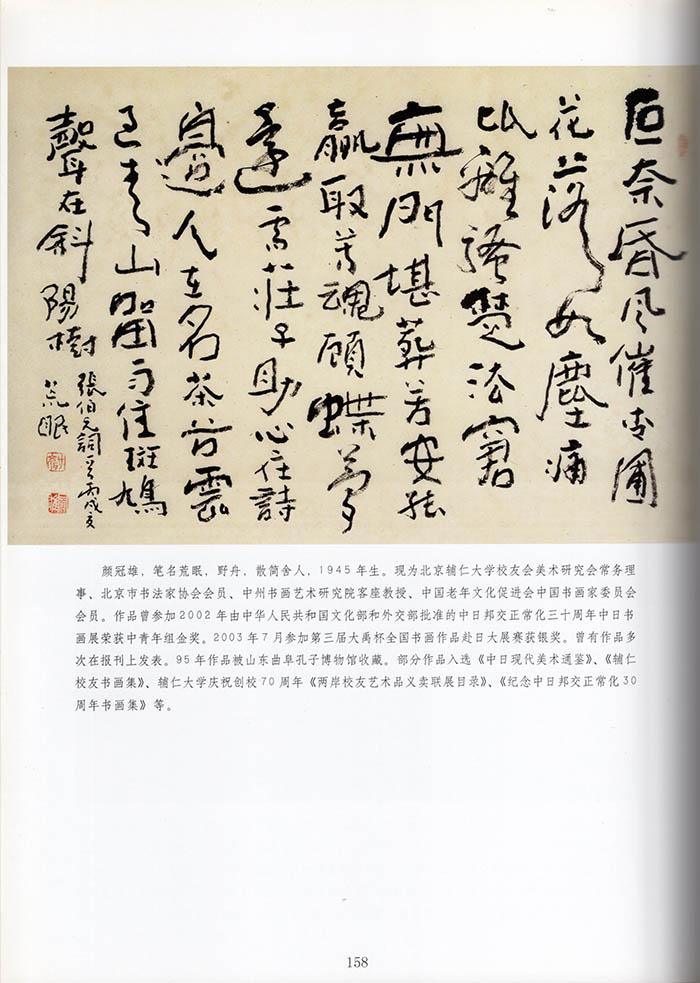 叵奈昏风催杏圃
花落如塵痛
比離騷楚法窘
無門堪葬苦安能
贏取芳魂顧蝶夢
還需莊子助心住詩
邊人在名茶苦雲
已青山留住斑鳩
聲在斜陽樹
張伯元詞一首丙戌
荒眠
颜冠雄,笔名荒眠,野舟,散简舍人,1945年生。现为北京辅仁大学校友会美术研究会常务理
事、北京市书法家协会会员、中州书画艺术研究院客座教授、中国老年文化促进会中国书画家委员会
会员。作品曾参加2002年由中华人民共和国文化部和外交部批准的中日邦交正常化三十周年中日书
画展荣获中青年组金奖。2003年7月参加第三届大禹杯全国书画作品赴日大展赛获银奖。曾有作品多
次在报刊上发表。95年作品被山东曲阜孔子博物馆收藏。部分作品入选《中日现代美术通鉴》、《辅仁
校友书画集》、辅仁大学庆祝创校70周年《两岸校友艺术品义卖联展目录》、《纪念中日邦交正常化30
周年书画集》等。
158